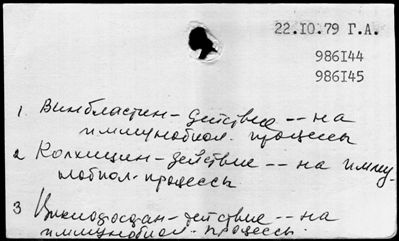 22.IO.79 Г.А.
986I44
986I45
1. Винбластин – действие -- на
иммунобиол. процессы
2 Колхицин – действие -- на имму-
нобиол. процессы
3 Циклофосфан – действие -- на
иммунобиол. процессы.